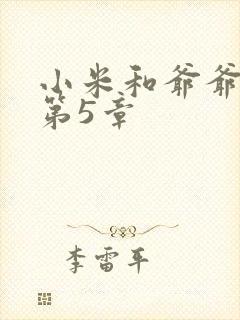 小米和爷爷
第5章
李雷平